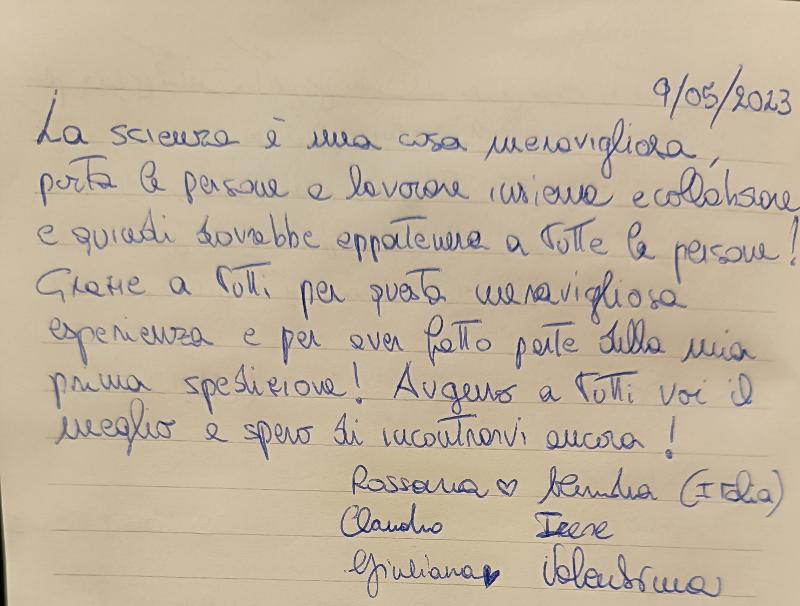 9/05/2023
La scienza è una cosa meravigliosa,
porta le persone a lavorare insieme e collaborare
e quindi dovrebbe appartenere a tutte le persone!
Grazie a tutti per questa meravigliosa
esperienza e per aver fatto parte della mia
prima spedizione! Auguro a tutti voi il
meglio e spero di incontrarvi ancora!
Rossana ♡ (Italia)
Claudio Irene
Giuliana ♥ Valentina